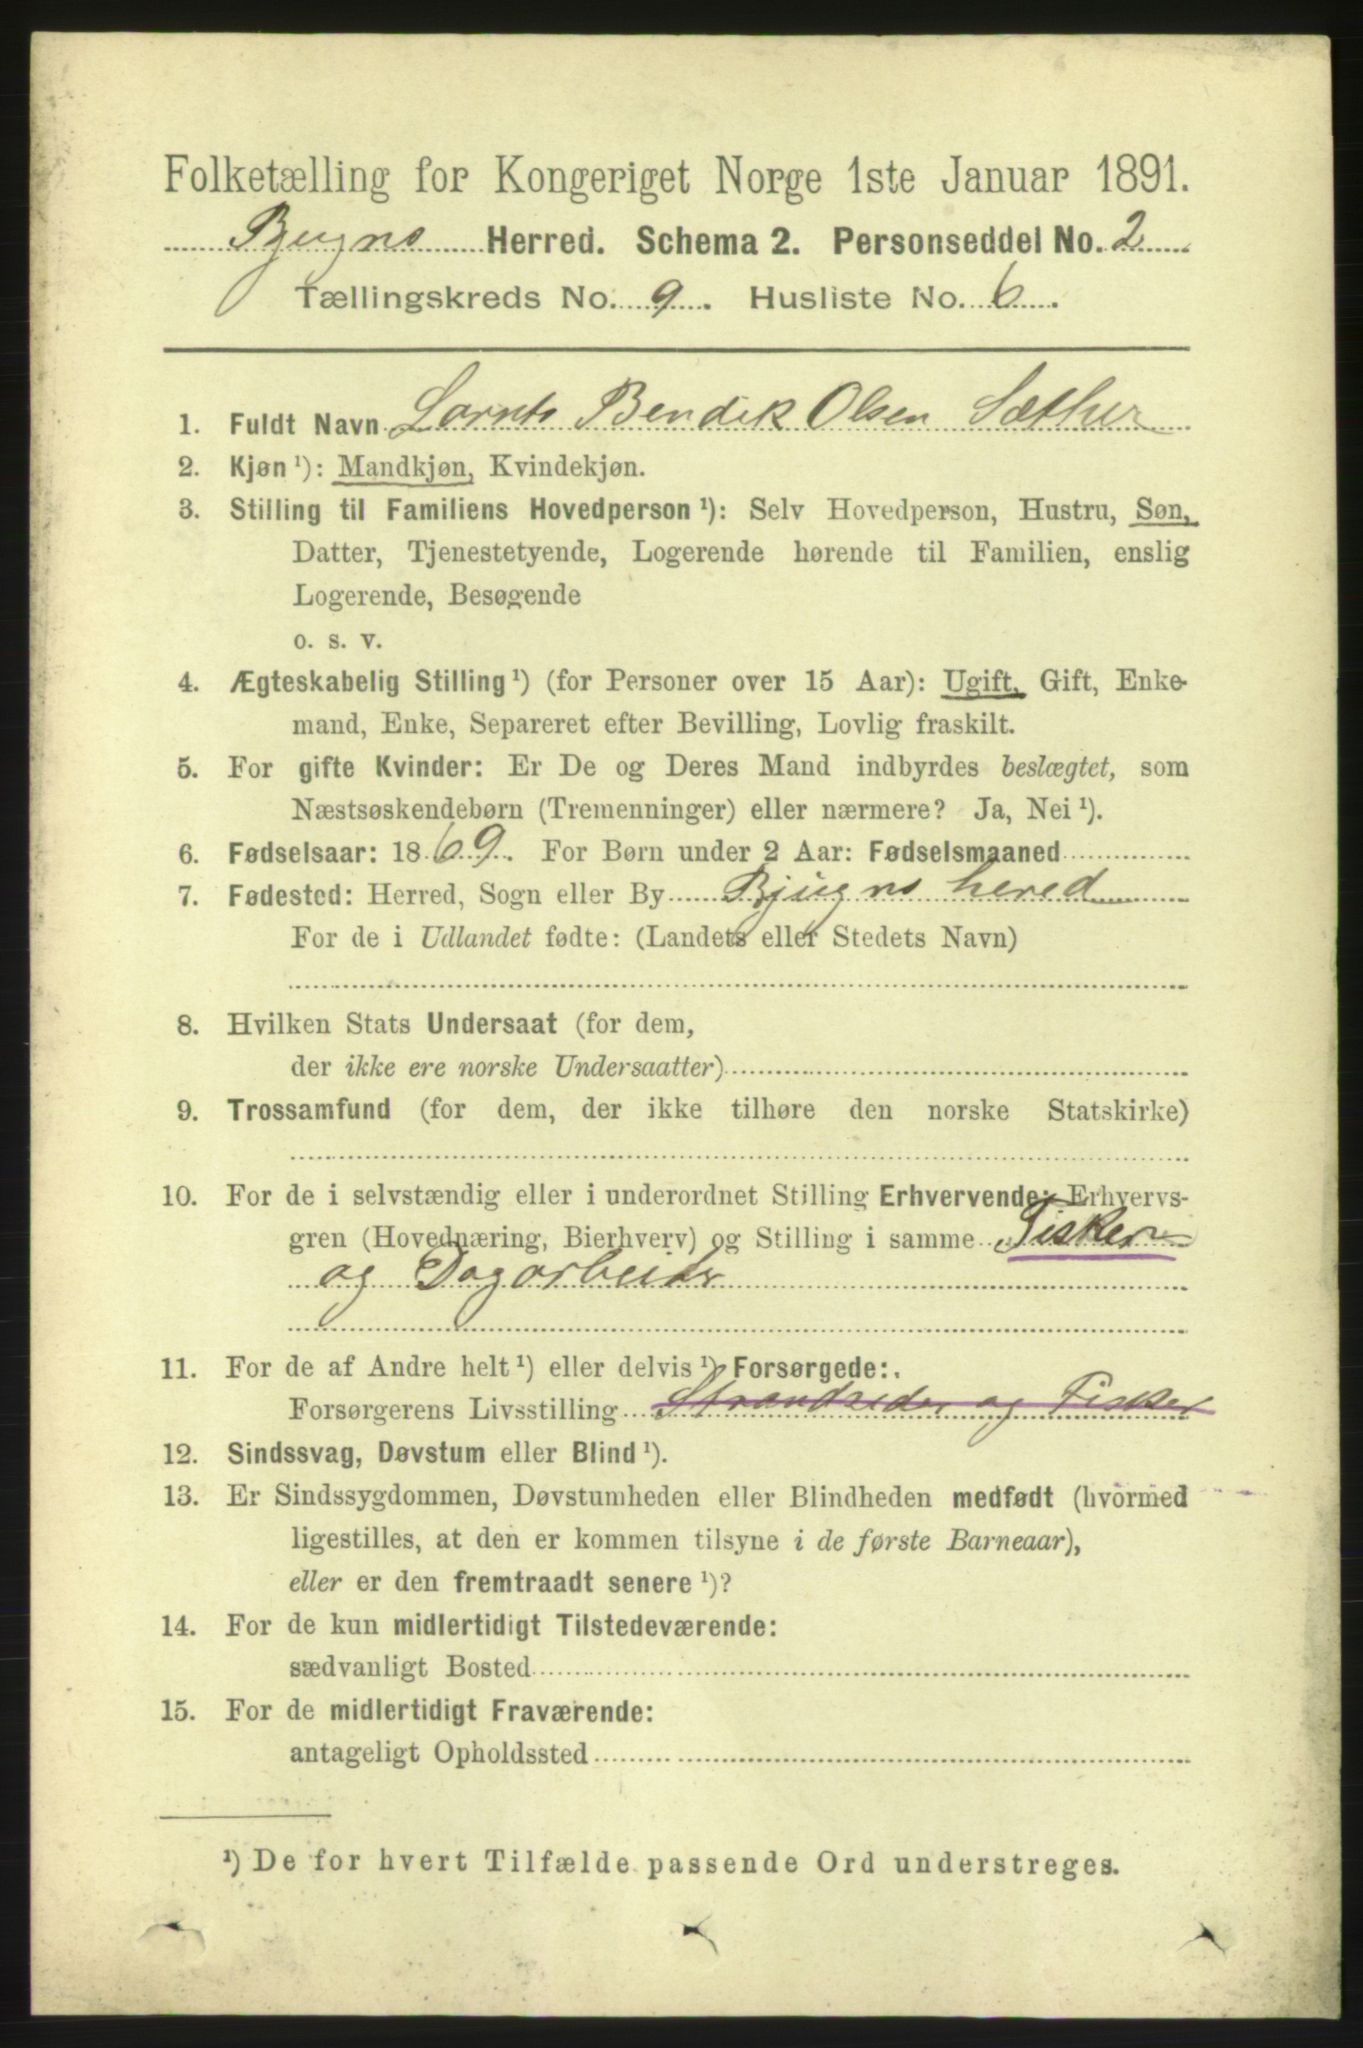 Folketælling for Kongeriget Norge 1ste Januar 1891.
Bjugns Herred. Schema 2. Personseddel No. 2
Tællingskreds No. 9. Husliste No. 6.
1. Fuldt Navn Lornts Bendik Olsen Sæther
2. Kjøn ¹): Mandkjøn, Kvindekjøn.
3. Stilling til Familiens Hovedperson ¹): Selv Hovedperson, Hustru, Søn,
Datter, Tjenestetyende, Logerende hørende til Familien, enslig
Logerende, Besøgende
o. s. v.
4. Ægteskabelig Stilling ¹) (for Personer over 15 Aar): Ugift, Gift, Enke-
mand, Enke, Separeret efter Bevilling, Lovlig fraskilt.
5. For gifte Kvinder: Er De og Deres Mand indbyrdes beslægtet, som
Næstsøskendebørn (Tremenninger) eller nærmere? Ja, Nei ¹).
6. Fødselsaar: 1869. For Børn under 2 Aar: Fødselsmaaned
7. Fødested: Herred, Sogn eller By Bjugns hered
For de i Udlandet fødte: (Landets eller Stedets Navn)
8. Hvilken Stats Undersaat (for dem,
der ikke ere norske Undersaatter)
9. Trossamfund (for dem, der ikke tilhøre den norske Statskirke)
10. For de i selvstændig eller i underordnet Stilling Erhvervende: Erhvervs-
gren (Hovednæring, Bierhverv) og Stilling i samme Fisker
og Dagarbeider
11. For de af Andre helt ¹) eller delvis ¹) Forsørgede:
Forsørgerens Livsstilling Strandsidder og Fisker
12. Sindssvag, Døvstum eller Blind ¹).
13. Er Sindssygdommen, Døvstumheden eller Blindheden medfødt (hvormed
ligestilles, at den er kommen tilsyne i de første Barneaar),
eller er den fremtraadt senere ¹)?
14. For de kun midlertidigt Tilstedeværende:
sædvanligt Bosted
15. For de midlertidigt Fraværende:
antageligt Opholdssted
¹) De for hvert Tilfælde passende Ord understreges.